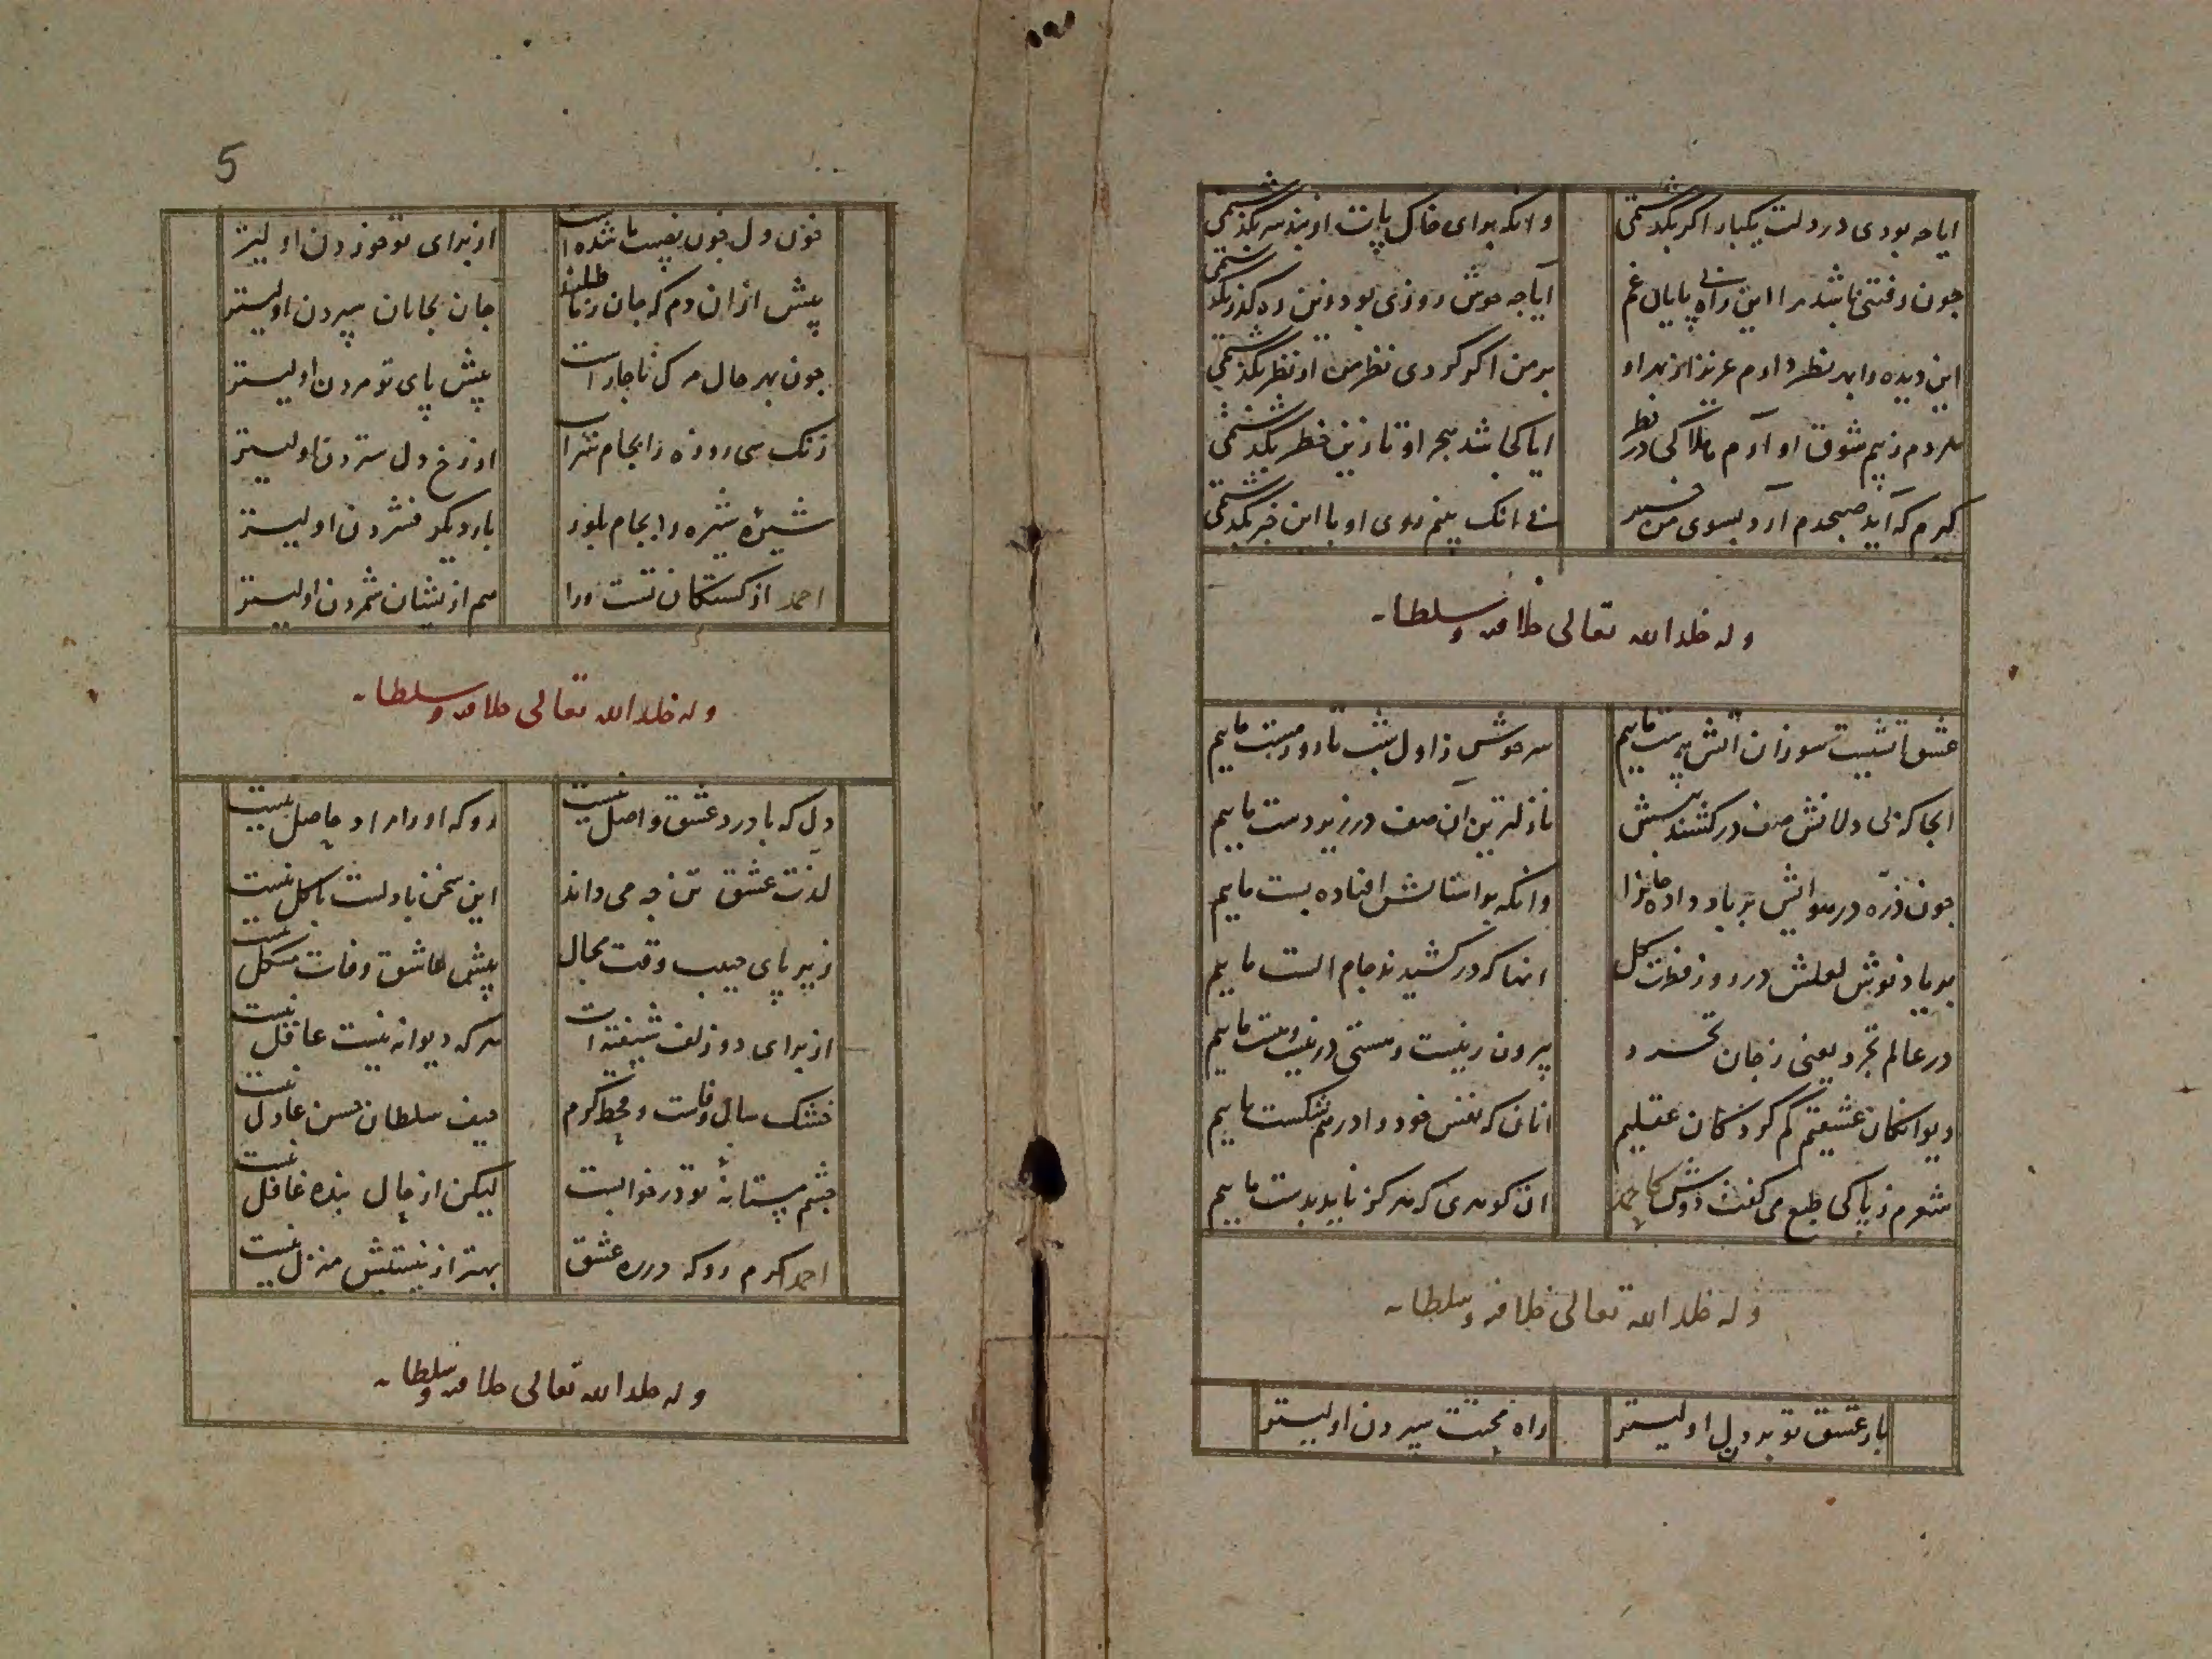 ایا چه بودی در دلت یکبار اگر بگذشتمی
وانکه برای خاک پایت از بند سر بگذشتمی
چون رفتنی باشد مرا این راه بی پایان غم
ایا چه خوش روزی بودی زین ره گذر بگذشتمی
این دیده را بهر نظر دارم عزیز از بهر او
بر من اگر کردی نظر من از نظر بگذشتمی
مردم ز بیم شوق او آرم هلاکی در نظر
ایا کجا شد هجر او تا زین خطر بگذشتمی
کیرم که آید صبحدم آرد بسوی من
نی انک بینم روی او با این خبر بگذشتمی
وله خلد الله تعالی خلافته وسلطانه
عشق آتشیست سوزان آتش پرست ماییم
سرخوش ز اول شب تا روز مست ماییم
انجا که بی دلانش صف درکشند پیشش
نازلترین آن صف در زیردست ماییم
چون ذره در هوایش بر باد داده جانرا
وانکه بر آستانش افتاده پست ماییم
بر یاد نوش لعلش در روز فطرت کل
انها که درکشیدند جام الست ماییم
در عالم تجرد یعنی ز جان
بیرون ز نیست و هستی در نیست وهست ماییم
دیوانکان عشقیم گم کردکان عقلیم
انان که نفس خود را درهم شکست ماییم
شعرم ز پاکی طبع می گفت دوش کاحمد
ان کوهری که هرکز ناید بدست ماییم
وله خلد الله تعالی خلافته وسلطانه
بار عشق تو بردن اولیتر
راه محنت سپردن اولیتر
5
خون دل چون نصیب ما شده است
از برای تو خوردن اولیتر
پیش ازان دم که جان ز ما طلبند
جان بجانان سپردن اولیتر
چون بهر حال مرک ناچار است
پیش پای تو مردن اولیتر
زنک سی روزه را بجام شراب
از رخ دل ستردن اولیتر
شیرهٔ شیره را بجام بلور
بار دیکر فشردن اولیتر
احمد از کشتکان تست ورا
هم ازیشان شمردن اولیتر
وله خلد الله تعالی خلافته وسلطانه
دل که با درد عشق واصل نیست
رو که او را مراد حاصل نیست
لذت عشق تن چه می داند
این سخن با دلست با کل نیست
زیر پای حبیب وقت مجال
پیش عاشق وفات مشکل نیست
از برای دو زلف شیفته است
هرکه دیوانه نیست عاقل نیست
خشک سال وفاست و قحط کرم
حیف سلطان حسن عادل نیست
چشم مستانهٔ تو در خوابست
لیکن از حال بنده غافل نیست
احمد اکرم رو که در ره عشق
بهتر از نیستیش منزل نیست
وله خلد الله تعالی خلافته وسلطانه